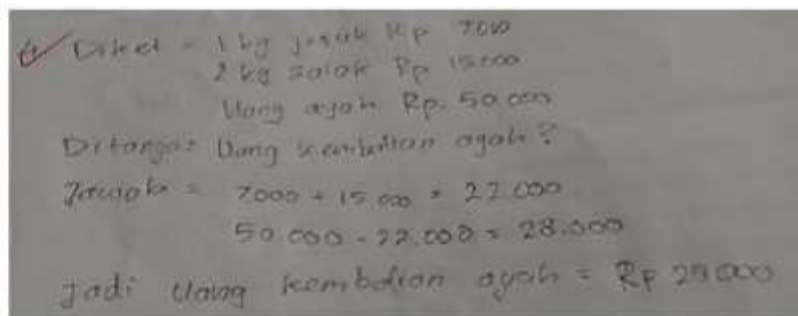 Diket = 1 kg jeruk Rp 7000
2 kg salak Rp 15.000
Uang ayah Rp. 50.000
Ditanya = Uang kembalian ayah?
Jawab = 7000 + 15.000 = 22.000
50.000 - 22.000 = 28.000
Jadi uang kembalian ayah = Rp 28000